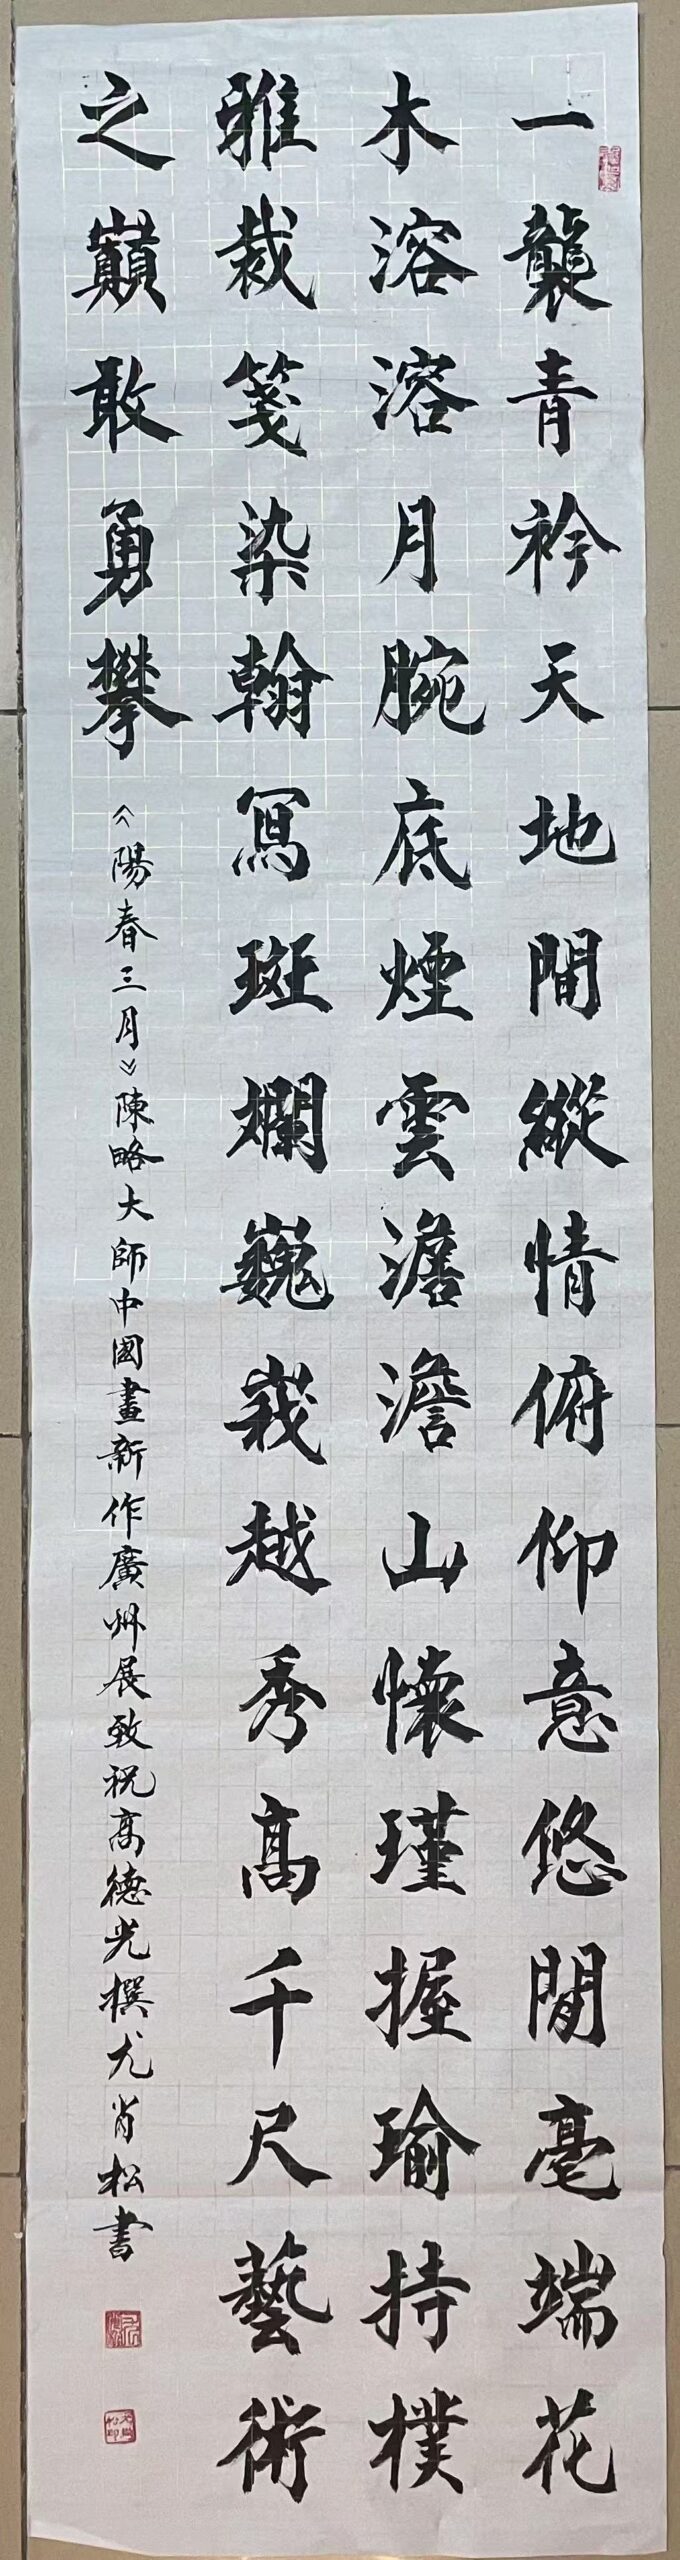 一襲青衿天地間縱情俯仰意悠閒毫端花
木溶溶月腕底煙雲澹澹山懷瑾握瑜持樸
雅裁箋染翰寫斑斕巍峩越秀高千尺藝術
之巔敢勇攀
《陽春三月》陳略大師中國畫新作廣州展致祝高德光撰尤肖松書